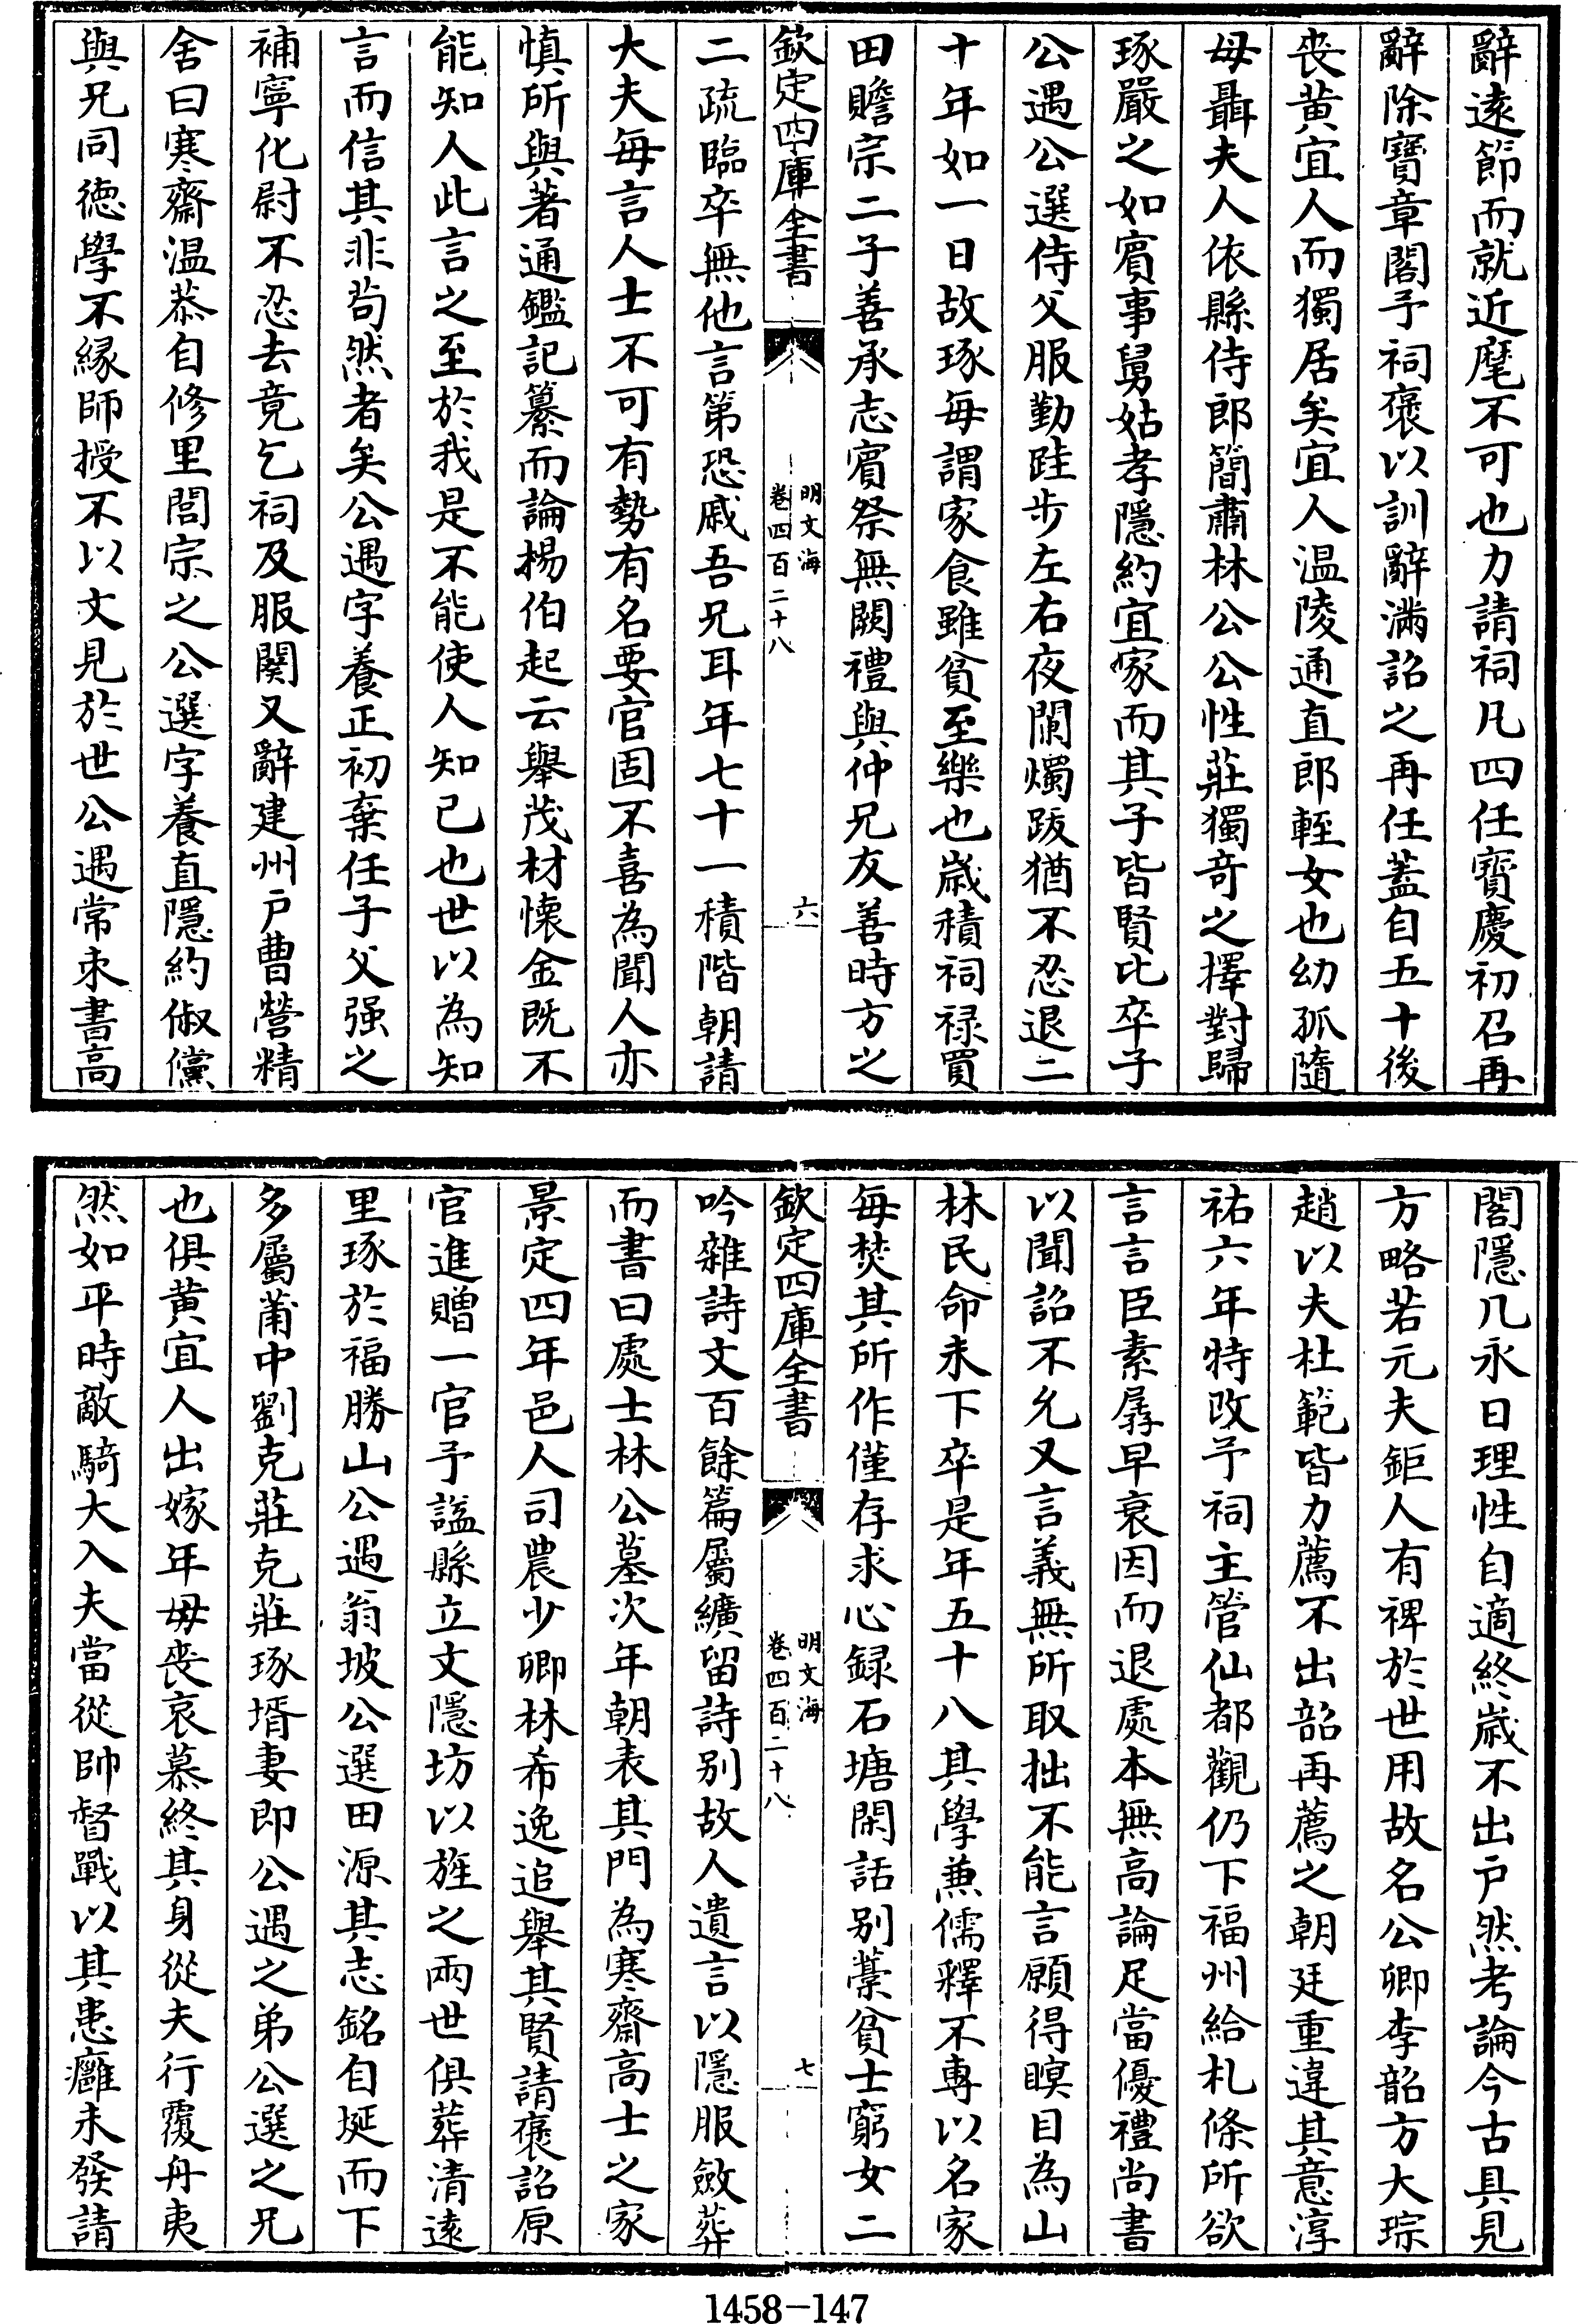 辭逺節而就近麾不可也力請祠凡四任寳慶初召再
辭除寳章閣予祠褒以訓辭滿詔之再任蓋自五十後
喪黄宜人而獨居矣宜人温陵通直郎輊女也幼孤隨
母聶夫人依縣侍郎簡肅林公公性莊獨竒之擇對歸
琢嚴之如賓事舅姑孝隱約宜家而其子皆賢比卒子
公遇公選侍父服勤跬步左右夜闌燭跋猶不忍退二
十年如一日故琢每謂家食雖貧至樂也嵗積祠禄買
田贍宗二子善承志賓祭無闕禮與仲兄友善時方之
欽定四庫全書
明文海
卷四百二十八
六
二疏臨卒無他言第恐戚吾兄耳年七十一積階朝請
大夫每言人士不可有勢有名要官固不喜為聞人亦
慎所與著通鑑記纂而論楊伯起云舉茂材懐金既不
能知人此言之至於我是不能使人知已也世以為知
言而信其非茍然者矣公遇字養正初棄任子父强之
補寧化尉不忍去竟乞祠及服闋又辭建州户曹營精
舍曰寒齋温恭自修里閭宗之公選字養直隱約俶儻
與兄同徳學不縁師授不以文見於世公遇常朿書高
閣隱几永日理性自適終嵗不出户然考論今古具見
方略若元夫鉅人有裨於世用故名公卿李韶方大琮
趙以夫杜範皆力薦不出韶再薦之朝廷重違其意淳
祐六年特改予祠主管仙都觀仍下福州給札條所欲
言言臣素孱早衰因而退處本無高論足當優禮尚書
以聞詔不允又言義無所取拙不能言願得瞑目為山
林民命未下卒是年五十八其學兼儒釋不專以名家
每焚其所作僅存求心録石塘閑話别藁貧士窮女二
欽定四庫全書
明文海
卷四百二十八
七
吟雜詩文百餘篇屬纊留詩别故人遺言以隱服斂葬
而書曰處士林公墓次年朝表其門為寒齋髙士之家
景定四年邑人司農少卿林希逸追舉其賢請褒詔原
官進贈一官予謚縣立文隱坊以旌之兩世俱葬清逺
里琢於福勝山公遇翁坡公選田源其志銘自埏而下
多屬莆中劉克莊克莊琢壻妻即公遇之弟公選之兄
也俱黄宜人出嫁年毋喪哀慕終其身從夫行覆舟夷
然如平時敵騎大入夫當從帥督戰以其患癰未發請
1458-147